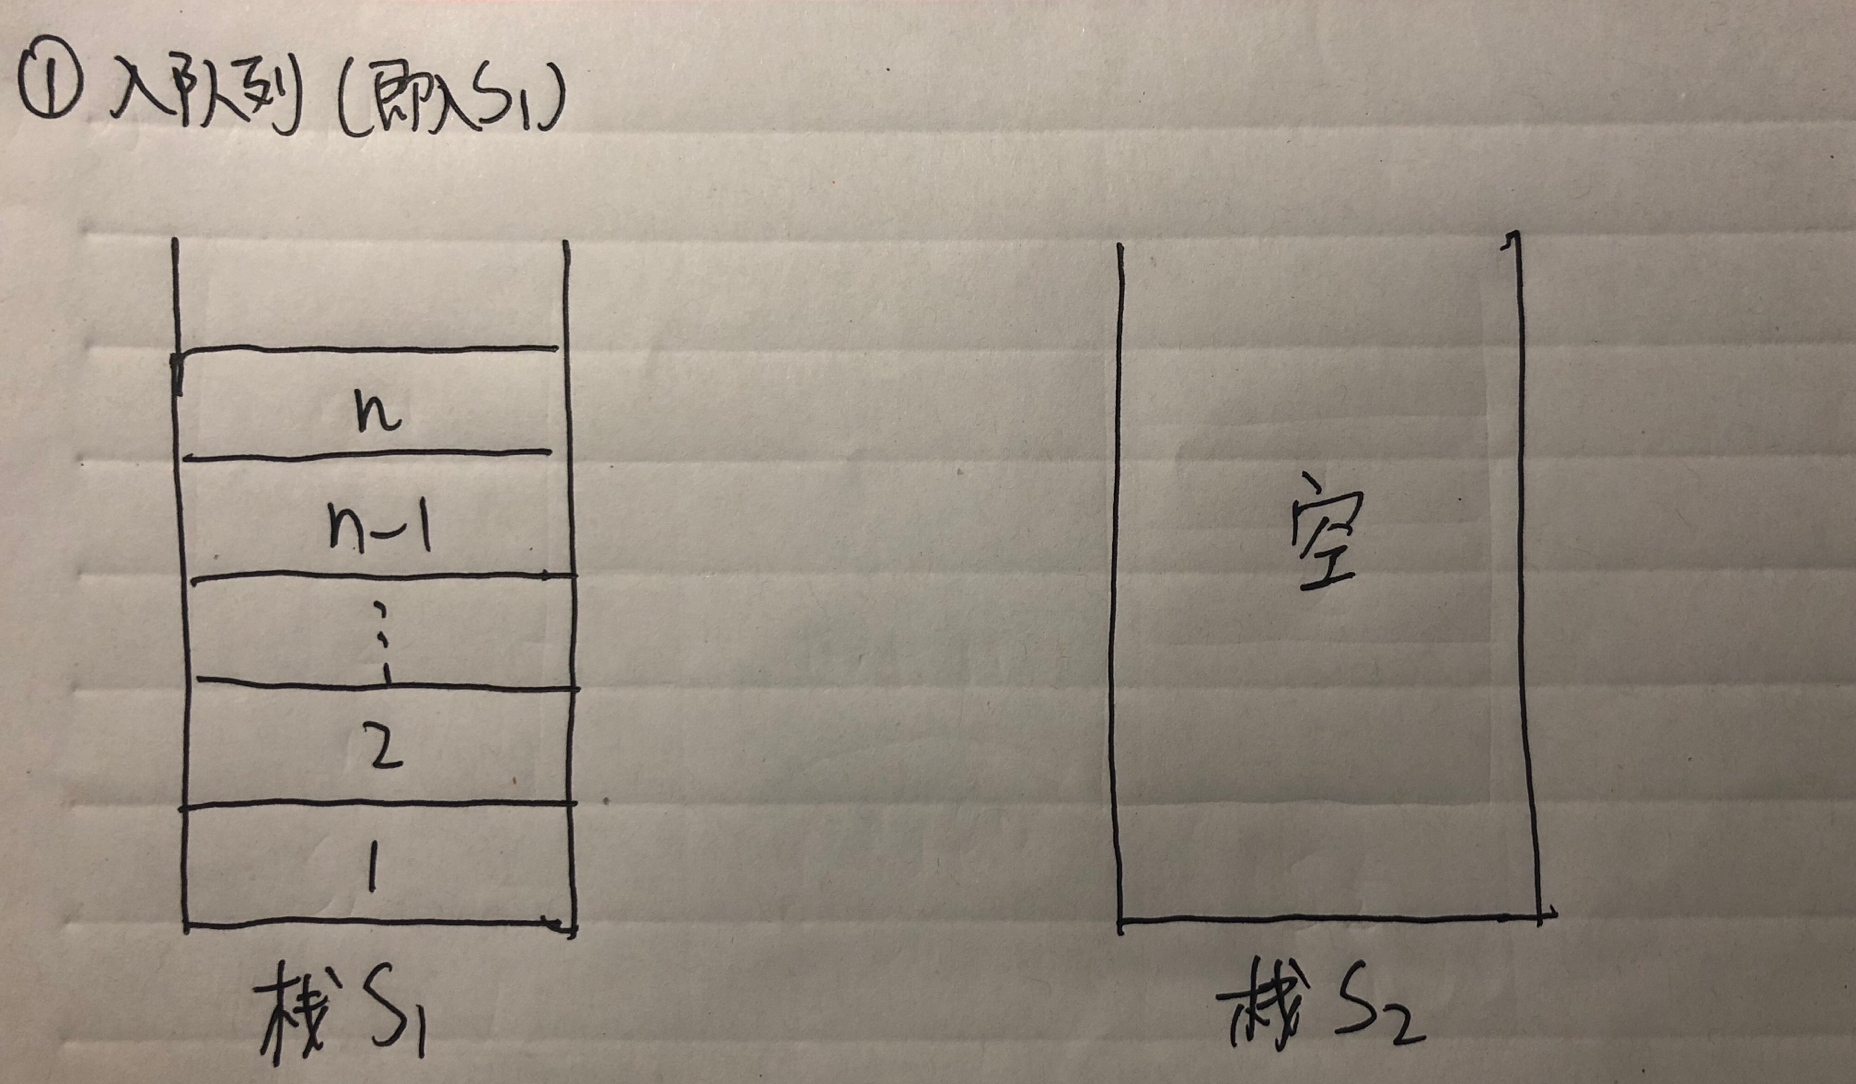 ① 入队列 (即入S1)
n
n-1
⋮
2
1
空
栈 S1
栈 S2